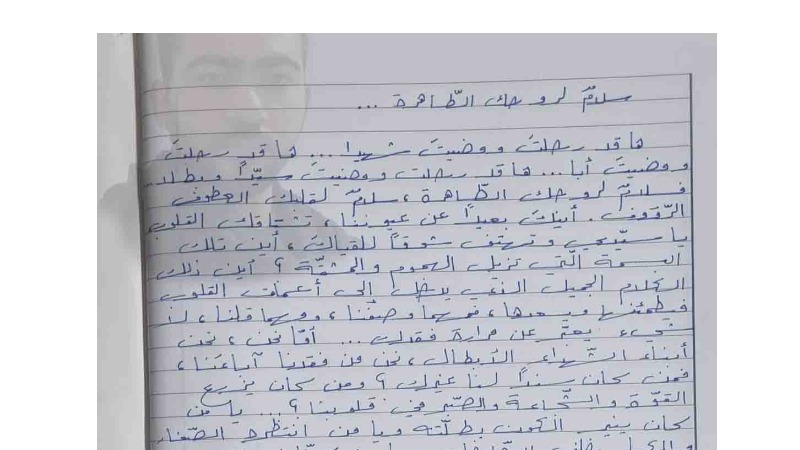 سلامٌ لروحك الطّاهرة ...
ها قد رحلتَ ومضيتَ شهيدا ... ها قد رحلتَ
ومضيتَ أبا ... ها قد رحلت ومضيتَ سيّداً وبطلا..
فسلامٌ لروحك الطّاهرة ، سلامٌ لقلبك العطوف
الرّؤوف . أيّنك بعيداً عن عيوننا ، تشتاقك القلوب
يا سيّدي وتهتف شوقاً للقياك ، أين تلك
البسمة الّتي تزيل الهموم والمشقّة ؟ أين ذلك
الكلام الجميل الذي يدخل إلى أعماق القلوب
فيطمئنها ويسعدها ، فمهما وصفنا ، ومهما قلنا ، لا
شيء يعبّر عن مرارة فقدك ... أمّا نحن ، نحن
أبناء الشّهداء الأبطال ، نحن من فقدنا آباءَنا ،
فمن كان سنداً لنا غيرك ؟ ومن كان يزرع
القوّة والشّجاعة والصّبر في قلوبنا ؟ ... يا من
كان ينير الكون بطلّته ويا من انتظره الصّغار